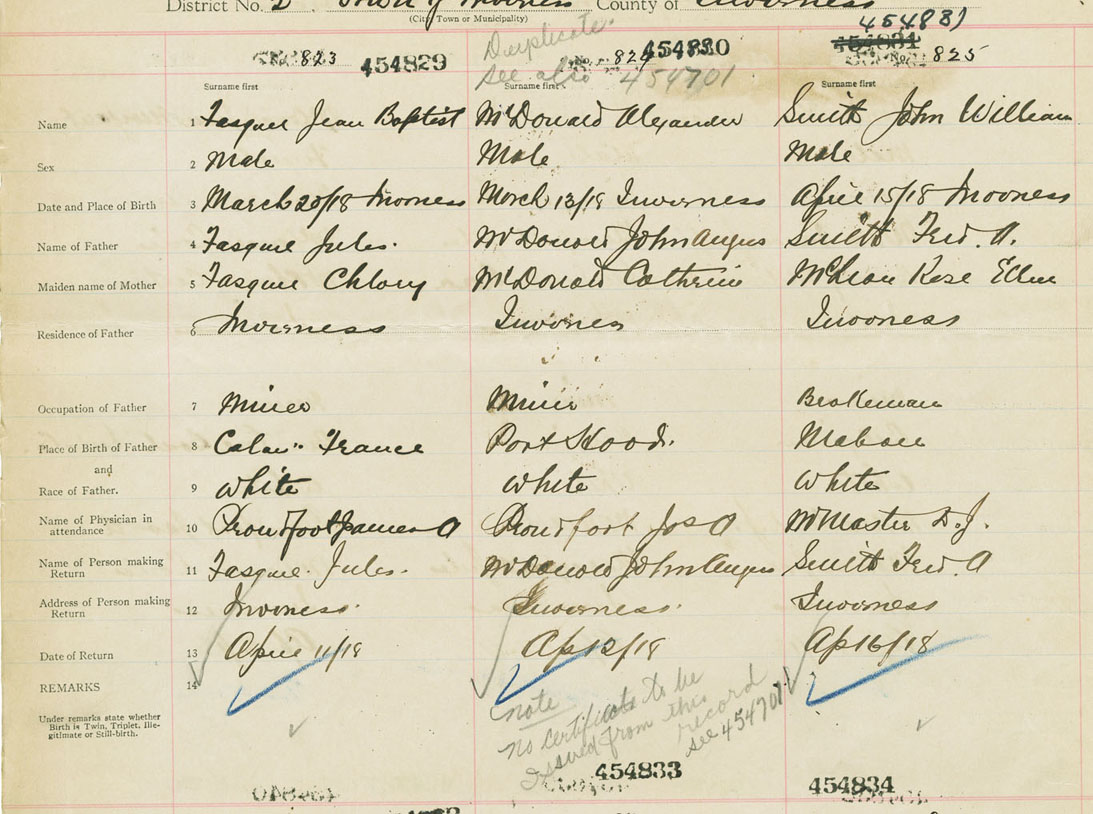 District No. 2 Town of Inverness County of Inverness
(City, Town or Municipality)
823 454829
Duplicate 824 454830
see also 454701
454831
454831 825
Surname first Surname first Surname first
Name 1 Fasquel Jean Baptist McDonald Alexander Smith John William
Sex 2 Male Male Male
Date and Place of Birth 3 March 20/18 Inverness March 13/18 Inverness April 15/18 Inverness
Name of Father 4 Fasquel Jules. McDonald John Angus Smith Fred. A.
Maiden name of Mother 5 Fasquel McDonald Catherine McLean Rose Ellen
Residence of Father 6 Inverness Inverness Inverness
Occupation of Father 7 Miner Miner Brakeman
Place of Birth of Father 8 France Port Hood. Mabou
and
Race of Father. 9 White White White
Name of Physician in
attendance 10 Proudfoot James A Proudfoot Jas A McMaster D. J.
Name of Person making
Return 11 Fasquel Jules. McDonald John Angus Smith Fred. A
Address of Person making
Return 12 Inverness. Inverness. Inverness
Date of Return 13 April 11/18 Ap 12/18 Ap 16/18
REMARKS 14
Under remarks state whether
Birth is Twin, Triplet, Ille-
gitimate or Still-birth.
note
no certificate to be
issued from this
record
see 454701
454833 454834